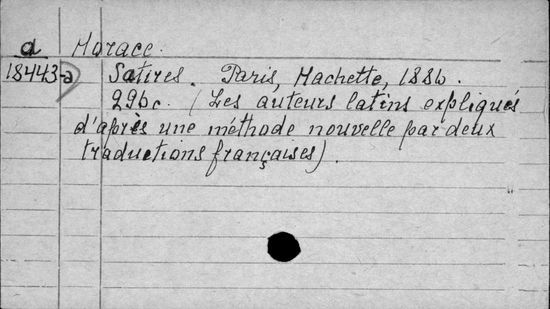 a Horace.
18443-a Satires. Paris, Hachette, 1886.
296c. (Les auteurs latins expliqués
d'après une méthode nouvelle par deux
traductions françaises).